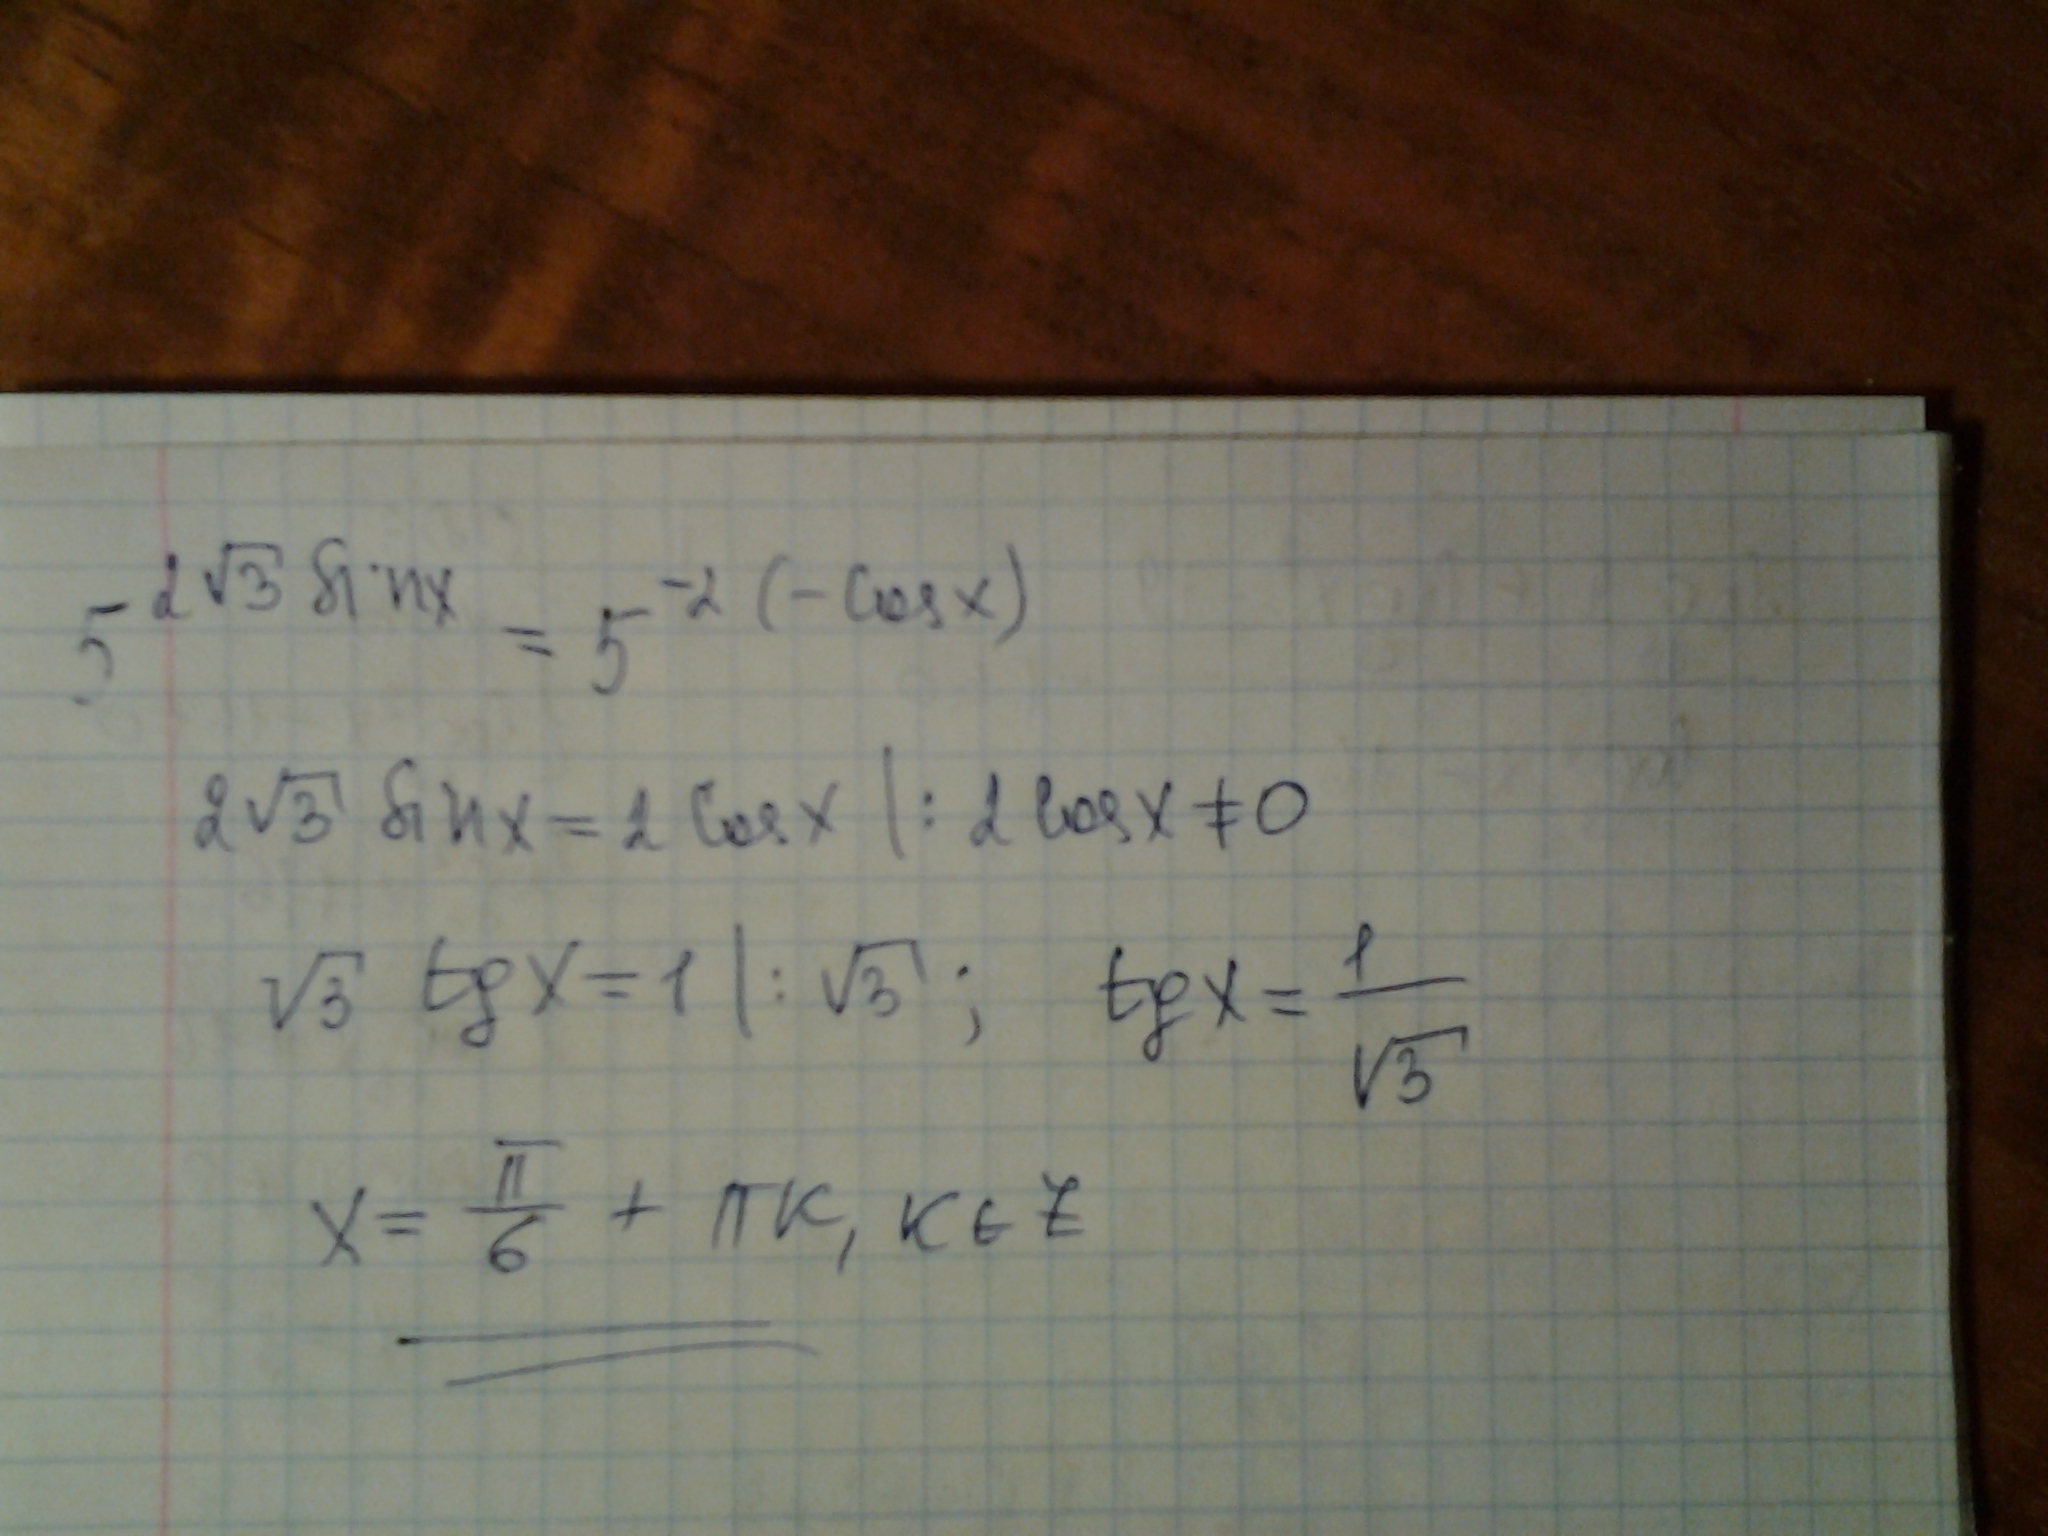 5^(2√3 sinx) = 5^(-2(-cosx))
2√3 sinx = 2 cosx |: 2 cosx ≠ 0
√3 tgx = 1 |: √3 ; tgx = 1/√3
x = π/6 + πk, k ∈ Z